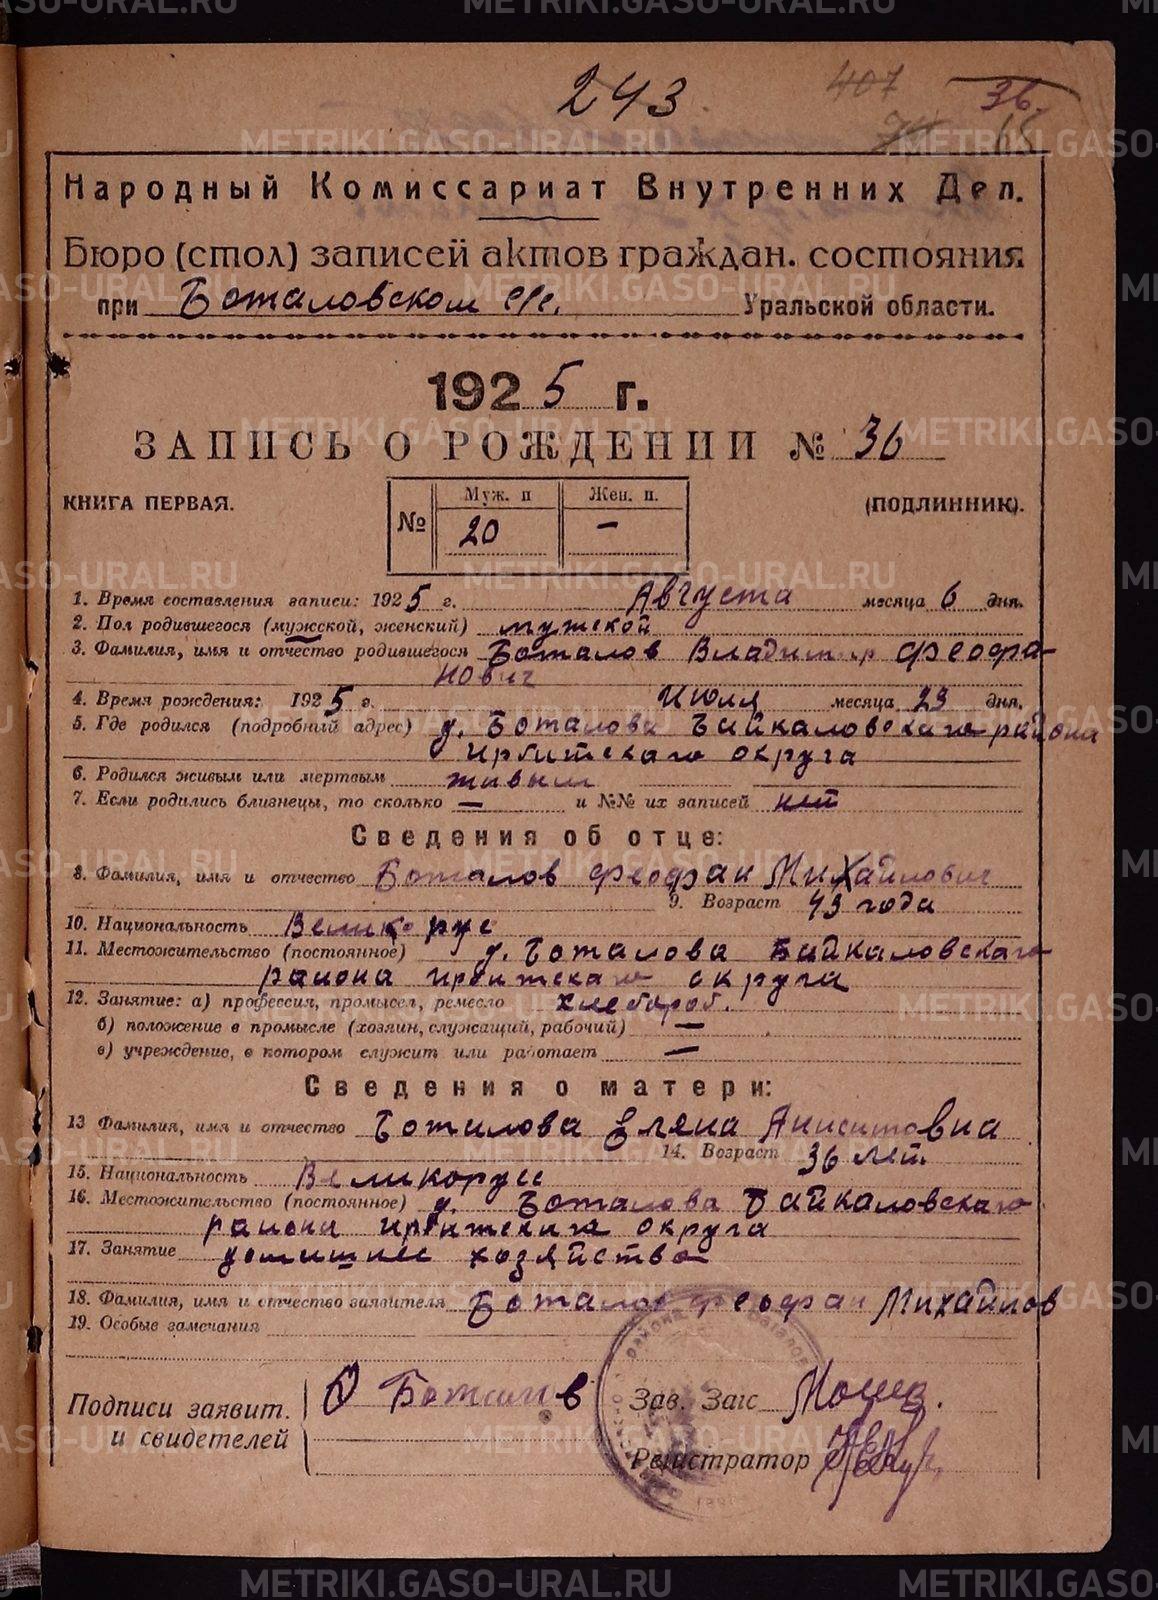 243
407
36.
Народный Комиссариат Внутренних Дел.
Бюро (стол) записей актов граждан. состояния
при Боталовском с/с. Уральской области.
1925 г.
ЗАПИСЬ О РОЖДЕНИИ № 36
КНИГА ПЕРВАЯ.
(ПОДЛИННИК).
№ Муж. п Жен. п.
20 –
1. Время составления записи: 1925 г. Августа месяца 6 дня.
2. Пол родившегося (мужской, женский) мужской
3. Фамилия, имя и отчество родившегося Боталов Владимир Феофа-
нович
4. Время рождения: 1925 г. Июля месяца 23 дня.
5. Где родился (подробный адрес) д. Боталова Байкаловского района
Ирбитского округа
6. Родился живым или мертвым живым
7. Если родились близнецы, то сколько — и №№ их записей нет
Сведения об отце:
8. Фамилия, имя и отчество Боталов Феофан Михайлович
9. Возраст 43 года
10. Национальность Великорус
11. Местожительство (постоянное) д. Боталова Байкаловскаго
района Ирбитскаго округа
12. Занятие: а) профессия, промысел, ремесло хлебароб.
б) положение в промысле (хозяин, служащий, рабочий) —
в) учреждение, в котором служит или работает —
Сведения о матери:
13 Фамилия, имя и отчество Боталова Елена Анисимовна
14. Возраст 36 лет
15. Национальность Великорусс
16. Местожительство (постоянное) д. Боталова Байкаловскаго
района Ирбитскаго округа
17. Занятие домашнее хозяйство
18. Фамилия, имя и отчество заявителя Боталов Феофан Михайлов
19. Особые замечания
Подписи заявит. и свидетелей
Ф Боталов
Зав. Загс
Регистратор
METRIKI.GASO-URAL.RU